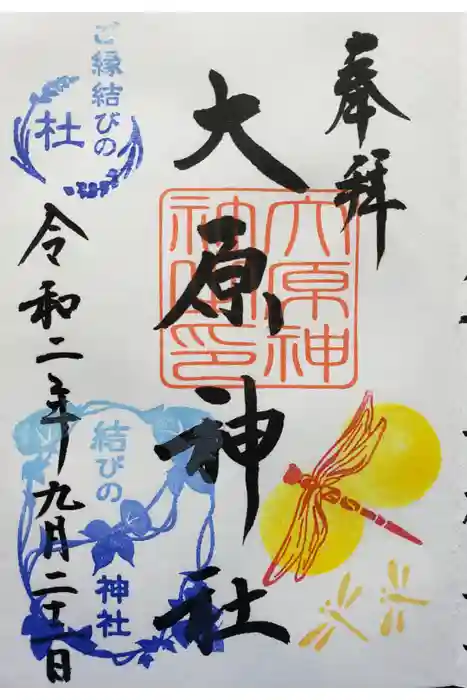 奉拝
大原神社
大原神
社印
令和二年九月二十一日
ご縁結びの
杜
結びの
神社